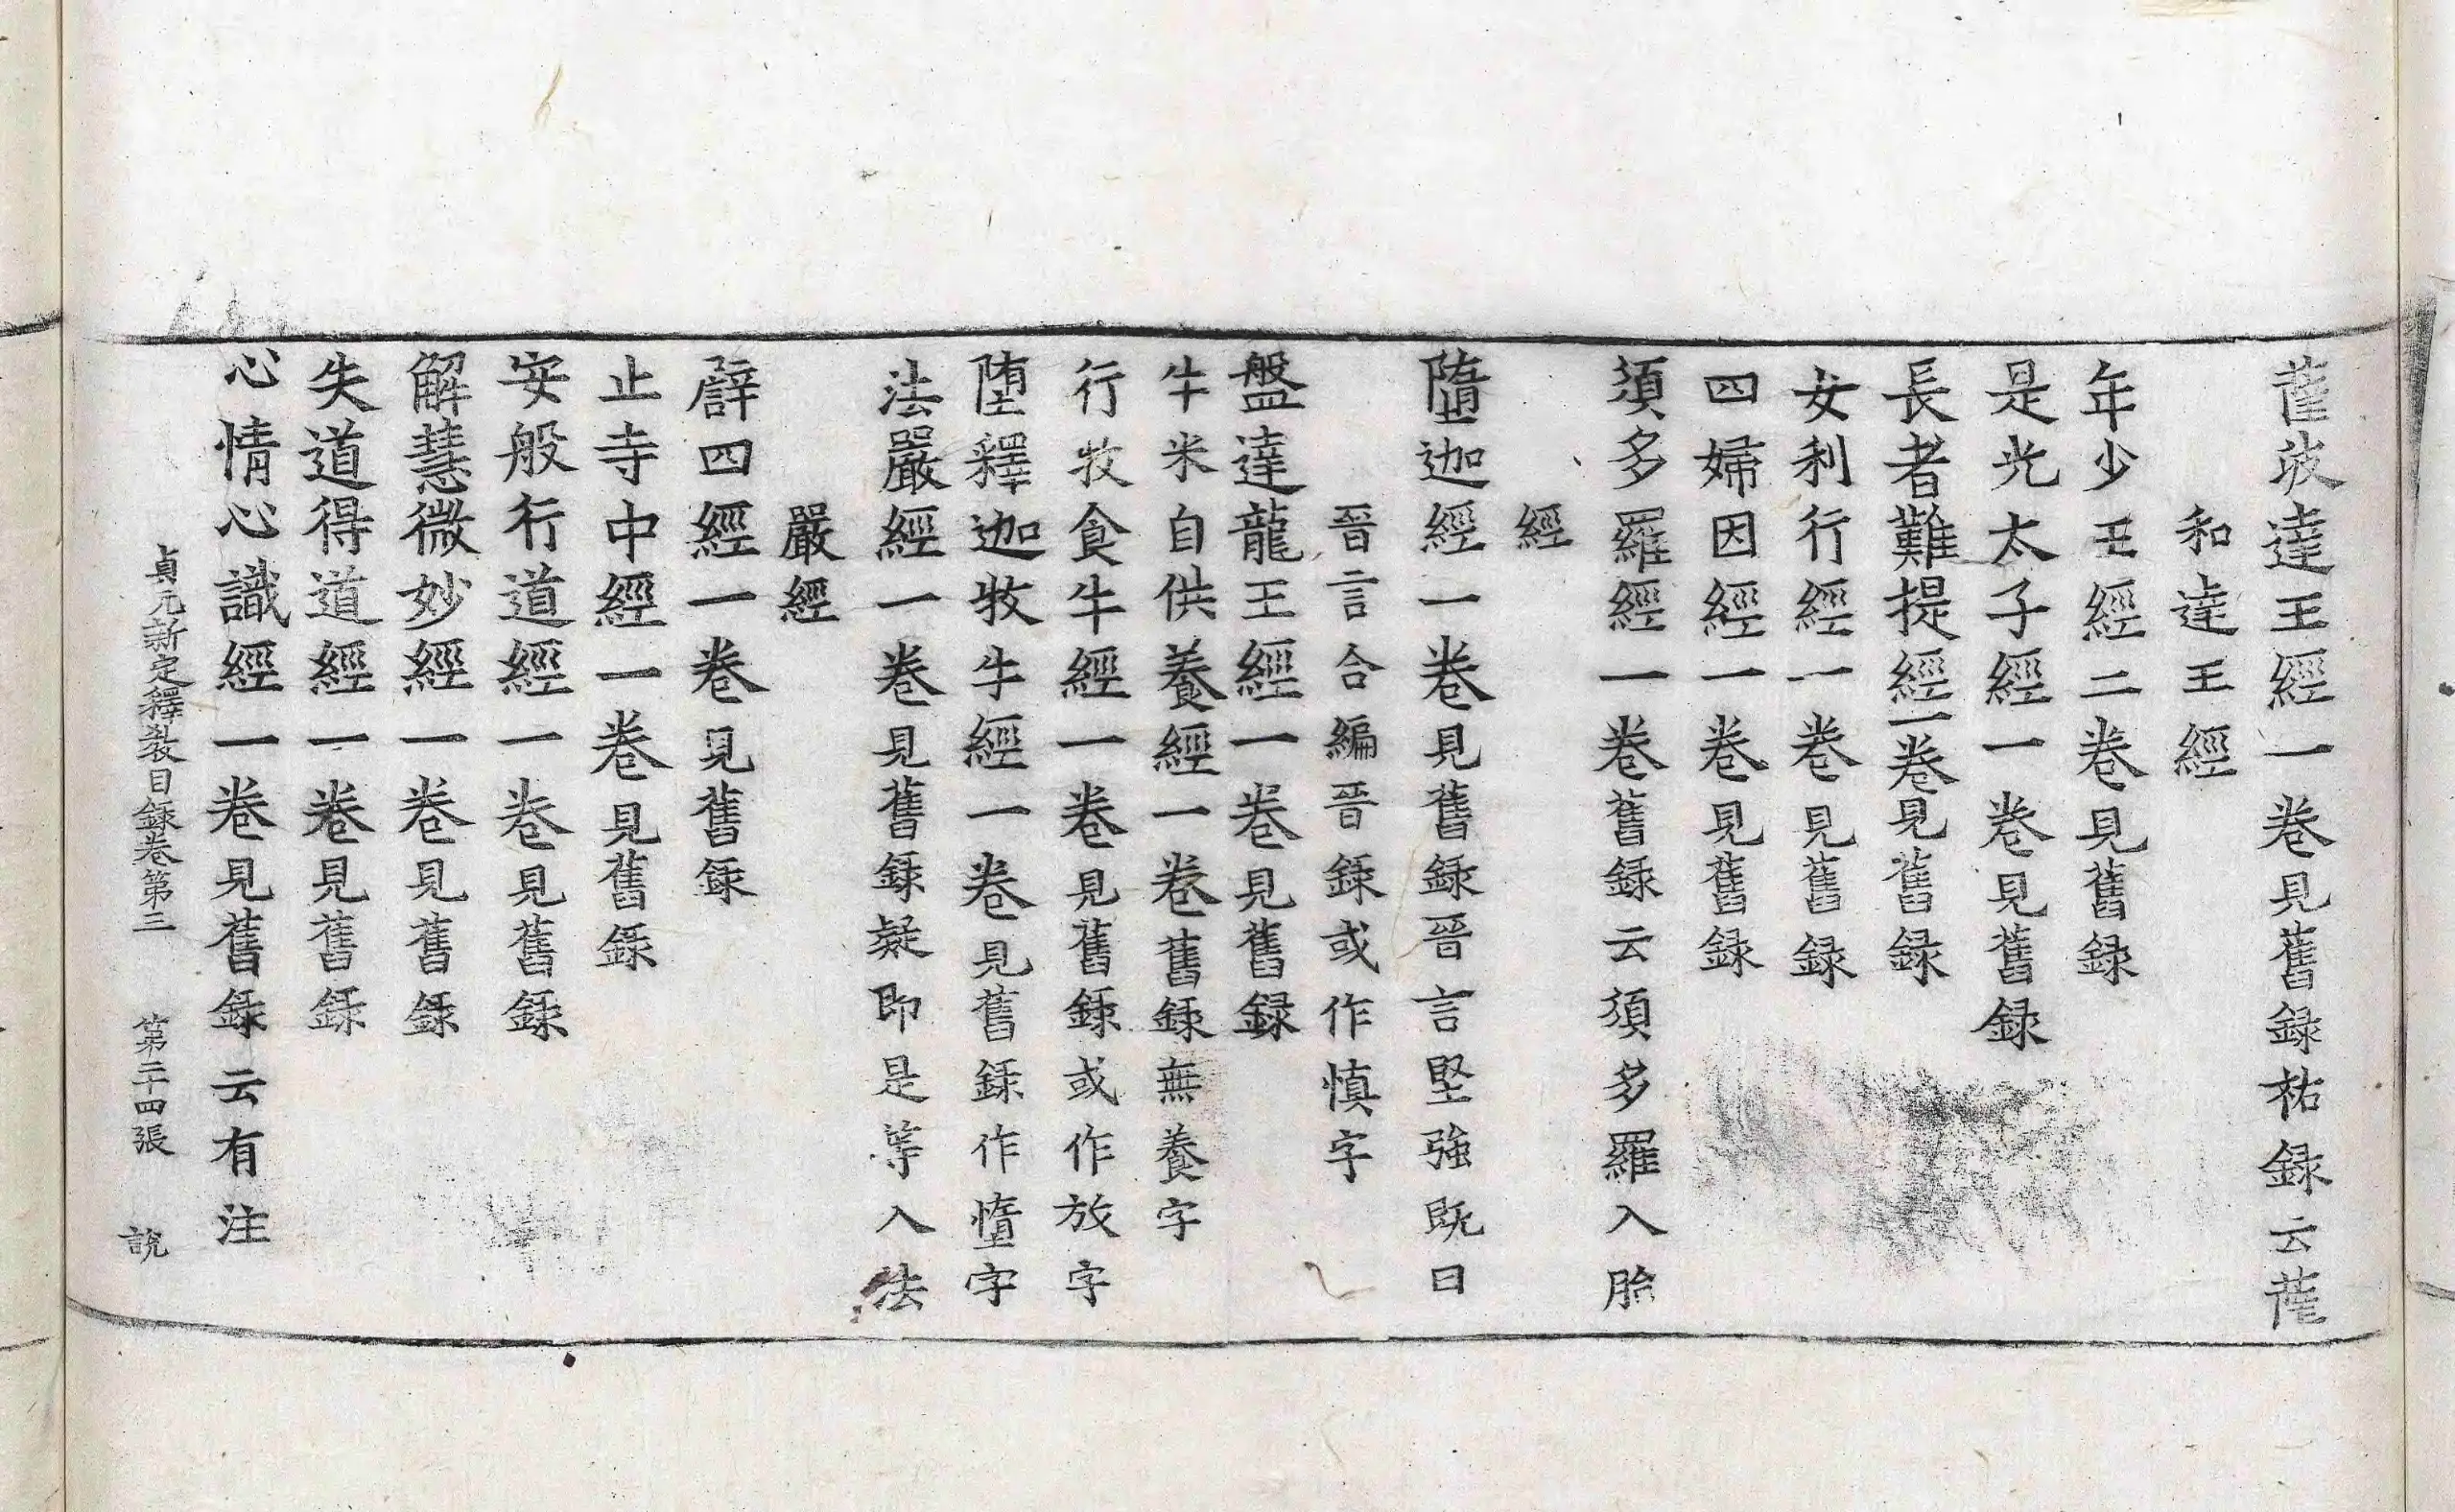 薩波達王經一卷見舊録祐録云薩
和達王經
年少王經二卷見舊録
是光太子經一卷見舊録
長者難提經一卷見舊録
女利行經一卷見舊録
四婦因經一卷見舊録
須多羅經一卷舊録云須多羅入胎
經
墮迦經一卷見舊録晉言堅強既曰
晉言合編晉録或作慎字
盤達龍王經一卷見舊録
牛米自供養經一卷舊録無養字
行牧食牛經一卷見舊録或作放字
堕釋迦牧牛經一卷見舊録作憻字
法嚴經一卷見舊録疑即是等入法
嚴經
辟四經一卷見舊録
止寺中經一卷見舊録
安般行道經一卷見舊録
解慧微妙經一卷見舊録
失道得道經一卷見舊録
心情心識經一卷見舊録云有注
貞元新定釋教目録卷第三 第二十四張 說